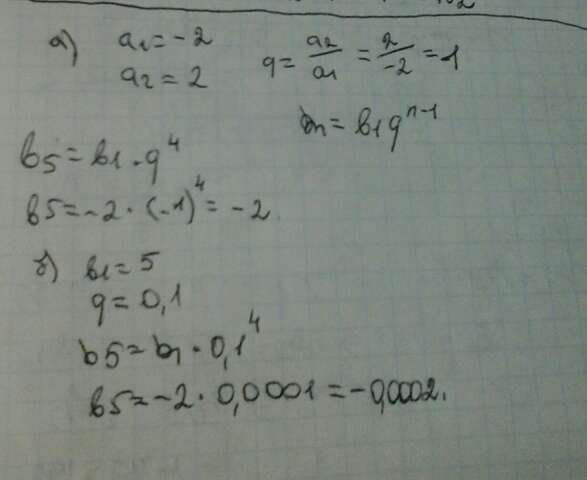 а) a₁=-2
a₂=2
q=a₂/a₁=2/-2=-1
bn=b₁qⁿ⁻¹
b5=b₁·q⁴
b5=-2·(-1)⁴=-2
б) b₁=5
q=0,1
b5=b₁·0,1⁴
b5=-2·0,0001=-0,0002.